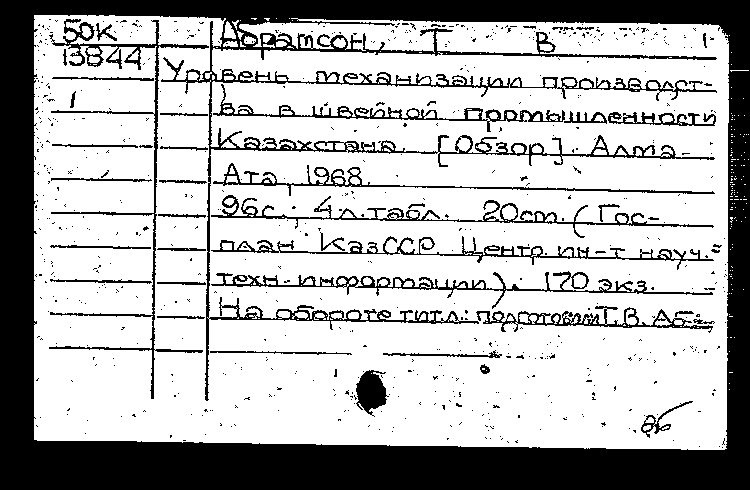 50К Абрамсон, Т В 1-
13844 Уровень механизации производст-
1 ва в швейной промышленности
Казахстана. [Обзор]. Алма-
Ата, 1968.
96с.; 4л.табл. 20см. (Гос-
план КазССР. Центр. ин-т науч.-
техн. информации). 170 экз.
На обороте титл.: подготовили Т.В. Аб-